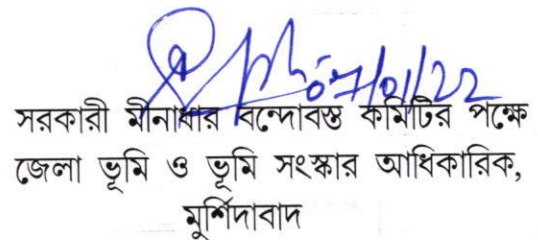 07/01/22
সরকারী মীনাধার বন্দোবস্ত কমিটির পক্ষে
জেলা ভূমি ও ভূমি সংস্কার আধিকারিক,
মুর্শিদাবাদ